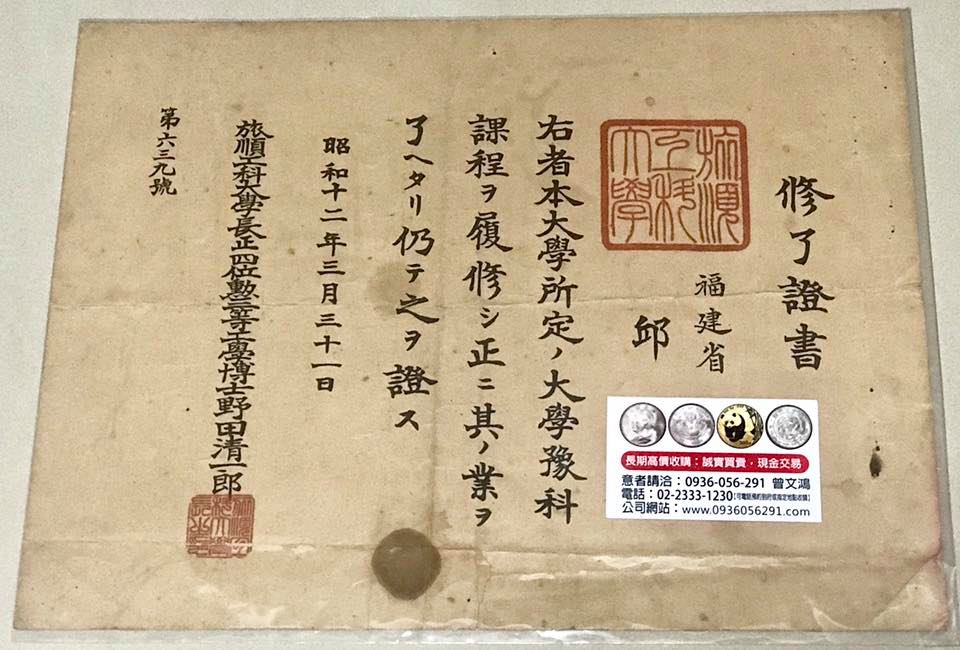 修了證書
旅順
工科
大學
福建省
邱
右者本大學所定ノ大學豫科
課程ヲ履修シ正ニ其ノ業ヲ
了ヘタリ仍テ之ヲ證ス
昭和十二年三月三十一日
旅順工科大學長正四位勲三等工學博士野田清一郎
第六三九號
長期高價收購：誠實買賣，現金交易
意者請洽：0936-056-291 曾文鴻
電話：02-2333-1230(可電話預約到府或指定地點收購)
公司網站：www.0936056291.com